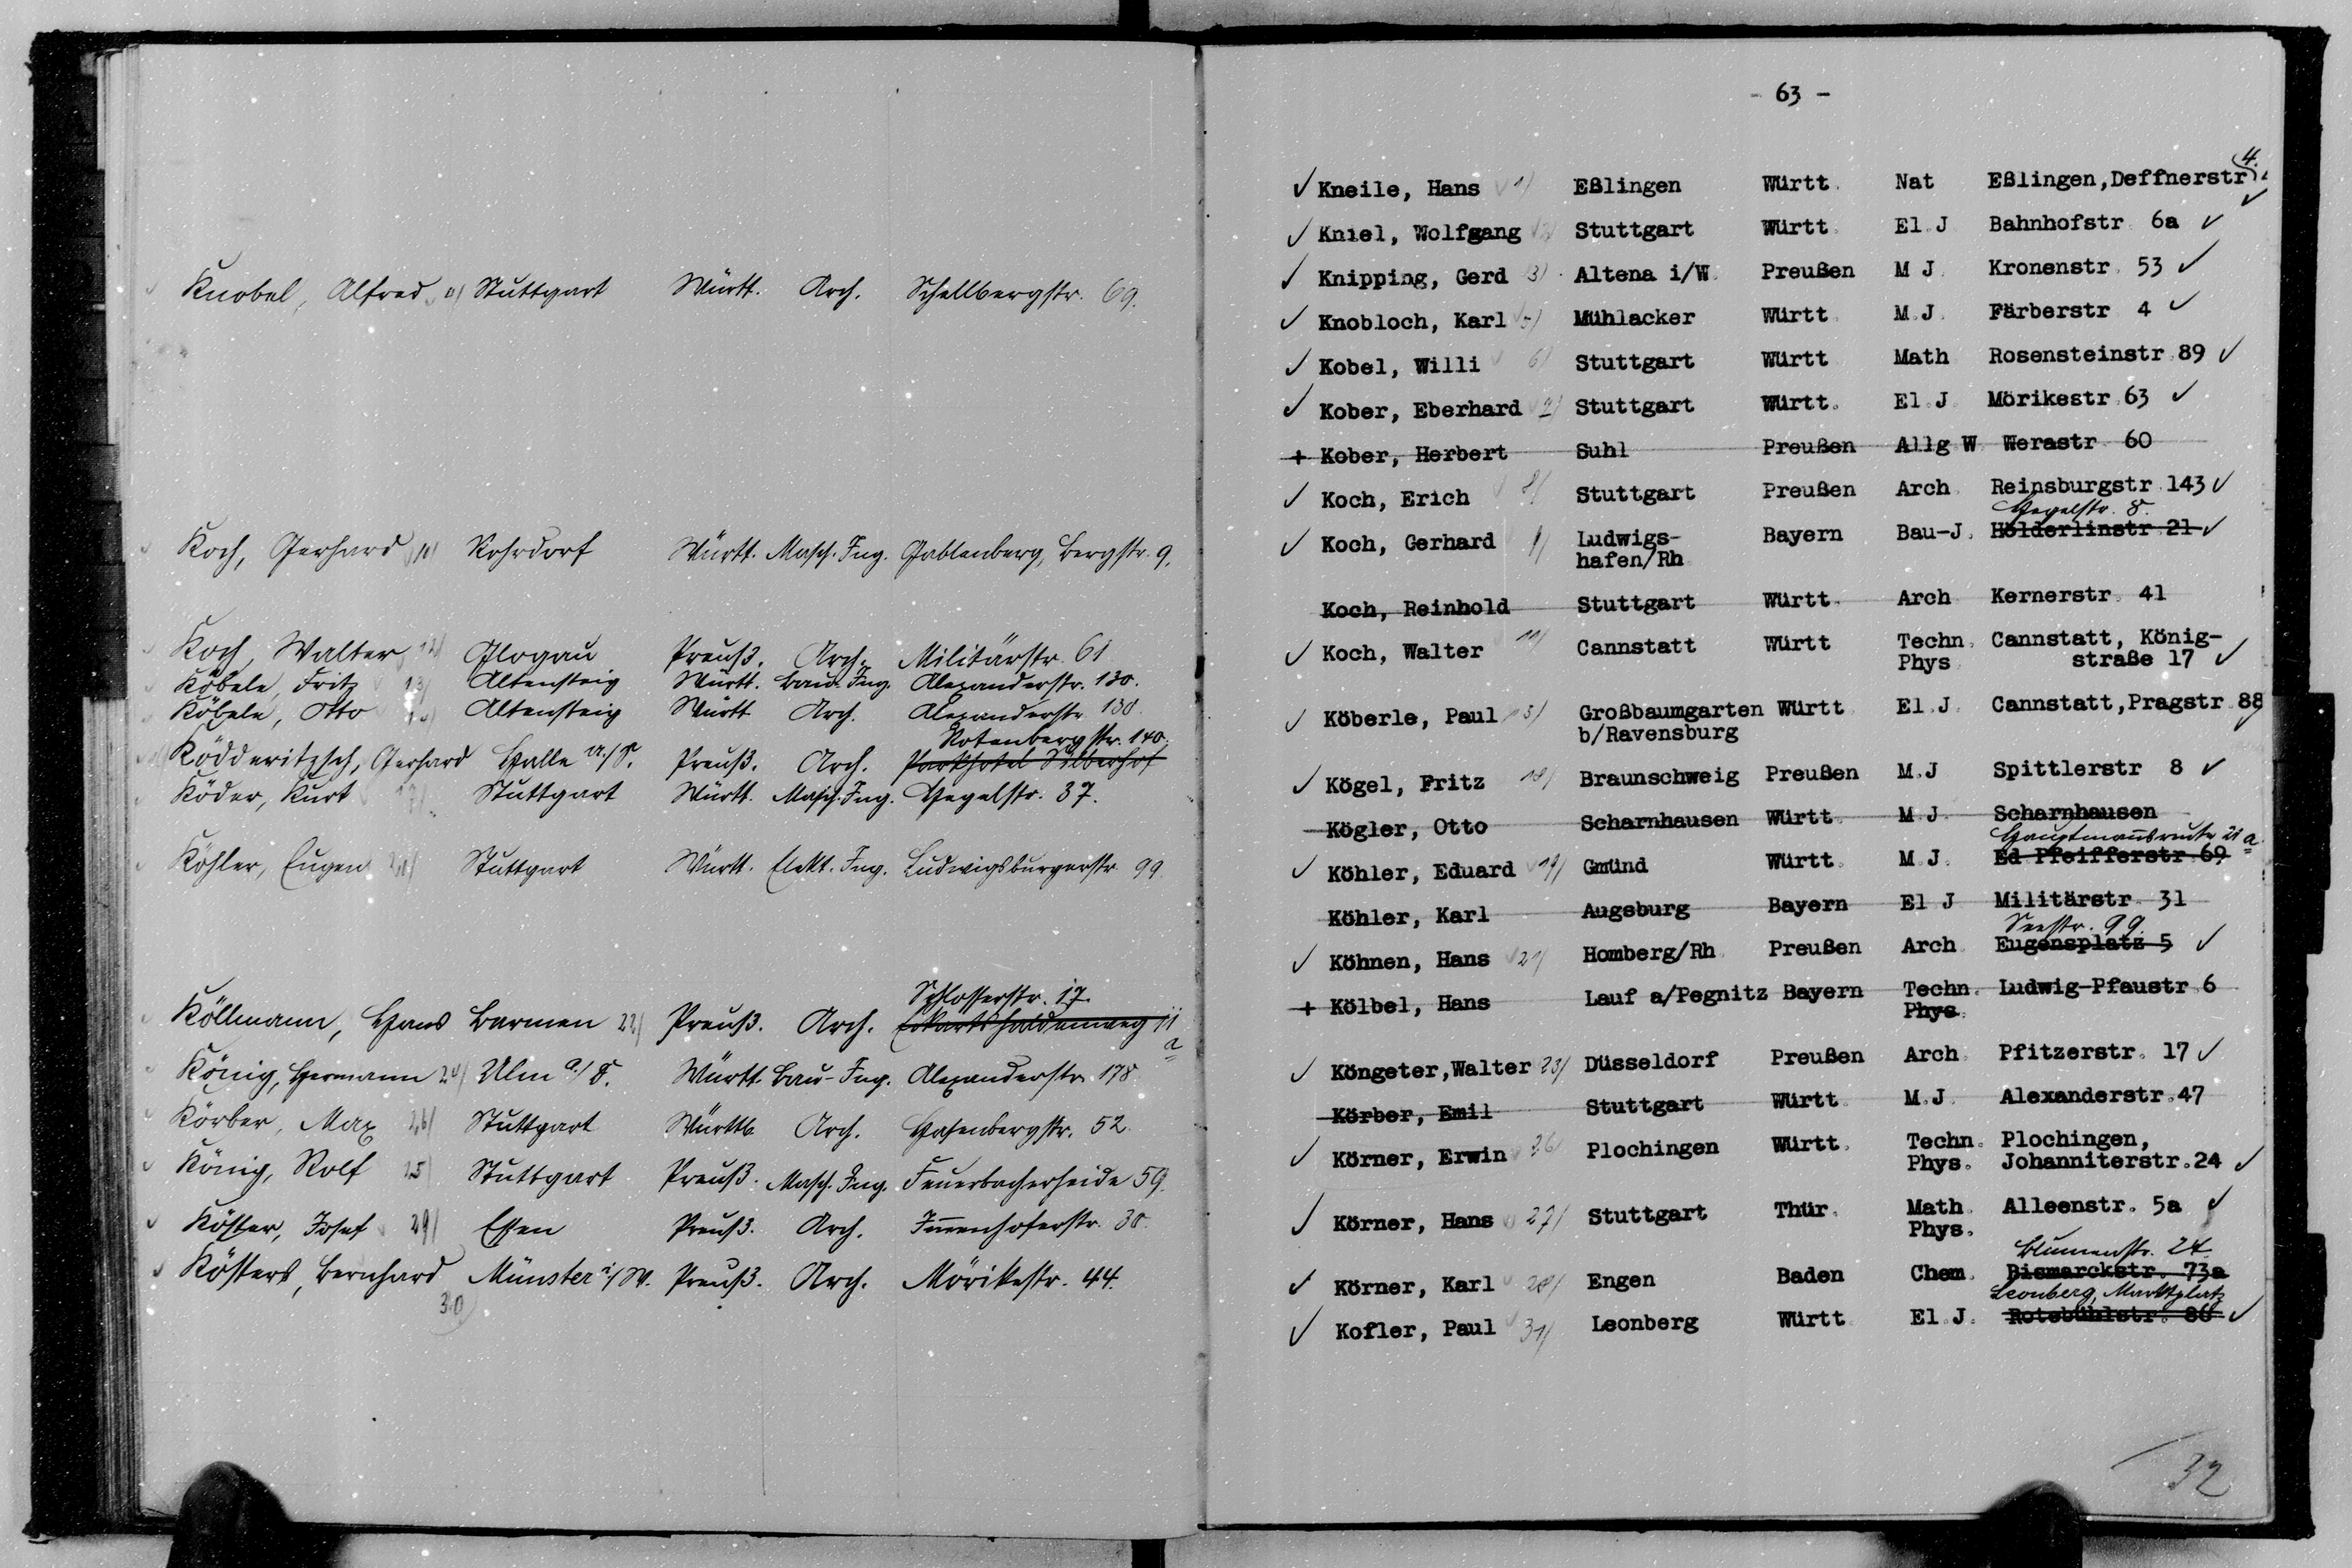 Knobel, Alfred 4) Stuttgart Württ. Arch. Schellbergstr. 69.
Koch, Gerhard 10) Rohrdorf Württ. Masch. Ing. Gablenberg, Bergstr. 9.
Koch, Walter 12) Glogau Preuß. Arch. Militärstr. 61
Köbele, Fritz 13) Altensteig Württ. Bau-Ing. Alexanderstr. 130.
Köbele, Otto 14) Altensteig Württ. Arch. Alexanderstr. 130.
Rotenbergstr. 140.
Ködderitzsch, Gerhard Halle a/S. Preuß. Arch. Parkhotel Silberhof
Köder, Kurt 17) Stuttgart Württ. Masch. Ing. Hegelstr. 37.
Köhler, Eugen 20) Stuttgart Württ. Elekt. Ing. Ludwigsburgerstr. 99.
Schlosserstr. 17.
Köllmann, Hans Barmen 22) Preuß. Arch. Eckartshaldenweg 11
a
König, Hermann 24) Ulm a/D. Württ. Bau-Ing. Alexanderstr. 178
Körber, Max 26) Stuttgart Württb. Arch. Hasenbergstr. 52.
König, Rolf 25) Stuttgart Preuß. Masch. Ing. Feuerbacherheide 59.
Köster, Josef 29) Essen Preuß. Arch. Immenhoferstr. 30.
Kösters, Bernhard Münster i/W. Preuß. Arch. Mörikestr. 44.
30)
- 63 -
4.
✓ Kneile, Hans 1) Eßlingen Württ. Nat Eßlingen,Deffnerstr
✓ Kniel, Wolfgang 2) Stuttgart Württ. El.J Bahnhofstr 6a ✓
✓ Knipping, Gerd 3) Altena i/W. Preußen M J. Kronenstr. 53 ✓
✓ Knobloch, Karl 5) Mühlacker Württ. M.J. Färberstr 4 ✓
✓ Kobel, Willi 6) Stuttgart Württ Math Rosensteinstr.89 ✓
✓ Kober, Eberhard 7) Stuttgart Württ. El.J Mörikestr.63 ✓
+ Kober, Herbert Suhl Preußen Allg W. Werastr. 60
✓ Koch, Erich 8) Stuttgart Preußen Arch Reinsburgstr.143 ✓
Hegelstr. 8.
✓ Koch, Gerhard 9) Ludwigs- Bayern Bau-J. Hölderlinstr.21 ✓
hafen/Rh
Koch, Reinhold Stuttgart Württ. Arch Kernerstr. 41
✓ Koch, Walter 11) Cannstatt Württ Techn. Cannstatt, König-
Phys. straße 17 ✓
✓ Köberle, Paul 15) Großbaumgarten Württ. El.J. Cannstatt,Pragstr.88
b/Ravensburg
✓ Kögel, Fritz 18) Braunschweig Preußen M.J Spittlerstr 8 ✓
Kögler, Otto Scharnhausen Württ. M J. Scharnhausen
Hauptmannsreute 21 a.
✓ Köhler, Eduard 19) Gmünd Württ. M.J. Ed Pfeifferstr.69
Köhler, Karl Augsburg Bayern El J Militärstr. 31
Seestr. 99.
✓ Köhnen, Hans 21) Homberg/Rh Preußen Arch Eugensplatz 5 ✓
+ Kölbel, Hans Lauf a/Pegnitz Bayern Techn. Ludwig-Pfaustr.6
Phys.
✓ Köngeter,Walter 23) Düsseldorf Preußen Arch Pfitzerstr. 17 ✓
Körber, Emil Stuttgart Württ M.J. Alexanderstr.47
✓ Körner, Erwin 26) Plochingen Württ. Techn. Plochingen,
Phys. Johanniterstr.24 ✓
✓ Körner, Hans 27) Stuttgart Thür. Math. Alleenstr. 5a ✓
Phys.
Blumenstr. 24.
✓ Körner, Karl 28) Engen Baden Chem. Bismarckstr. 73a
Leonberg, Marktplatz
✓ Kofler, Paul 31) Leonberg Württ El.J. Rotebühlstr. 86 ✓
32